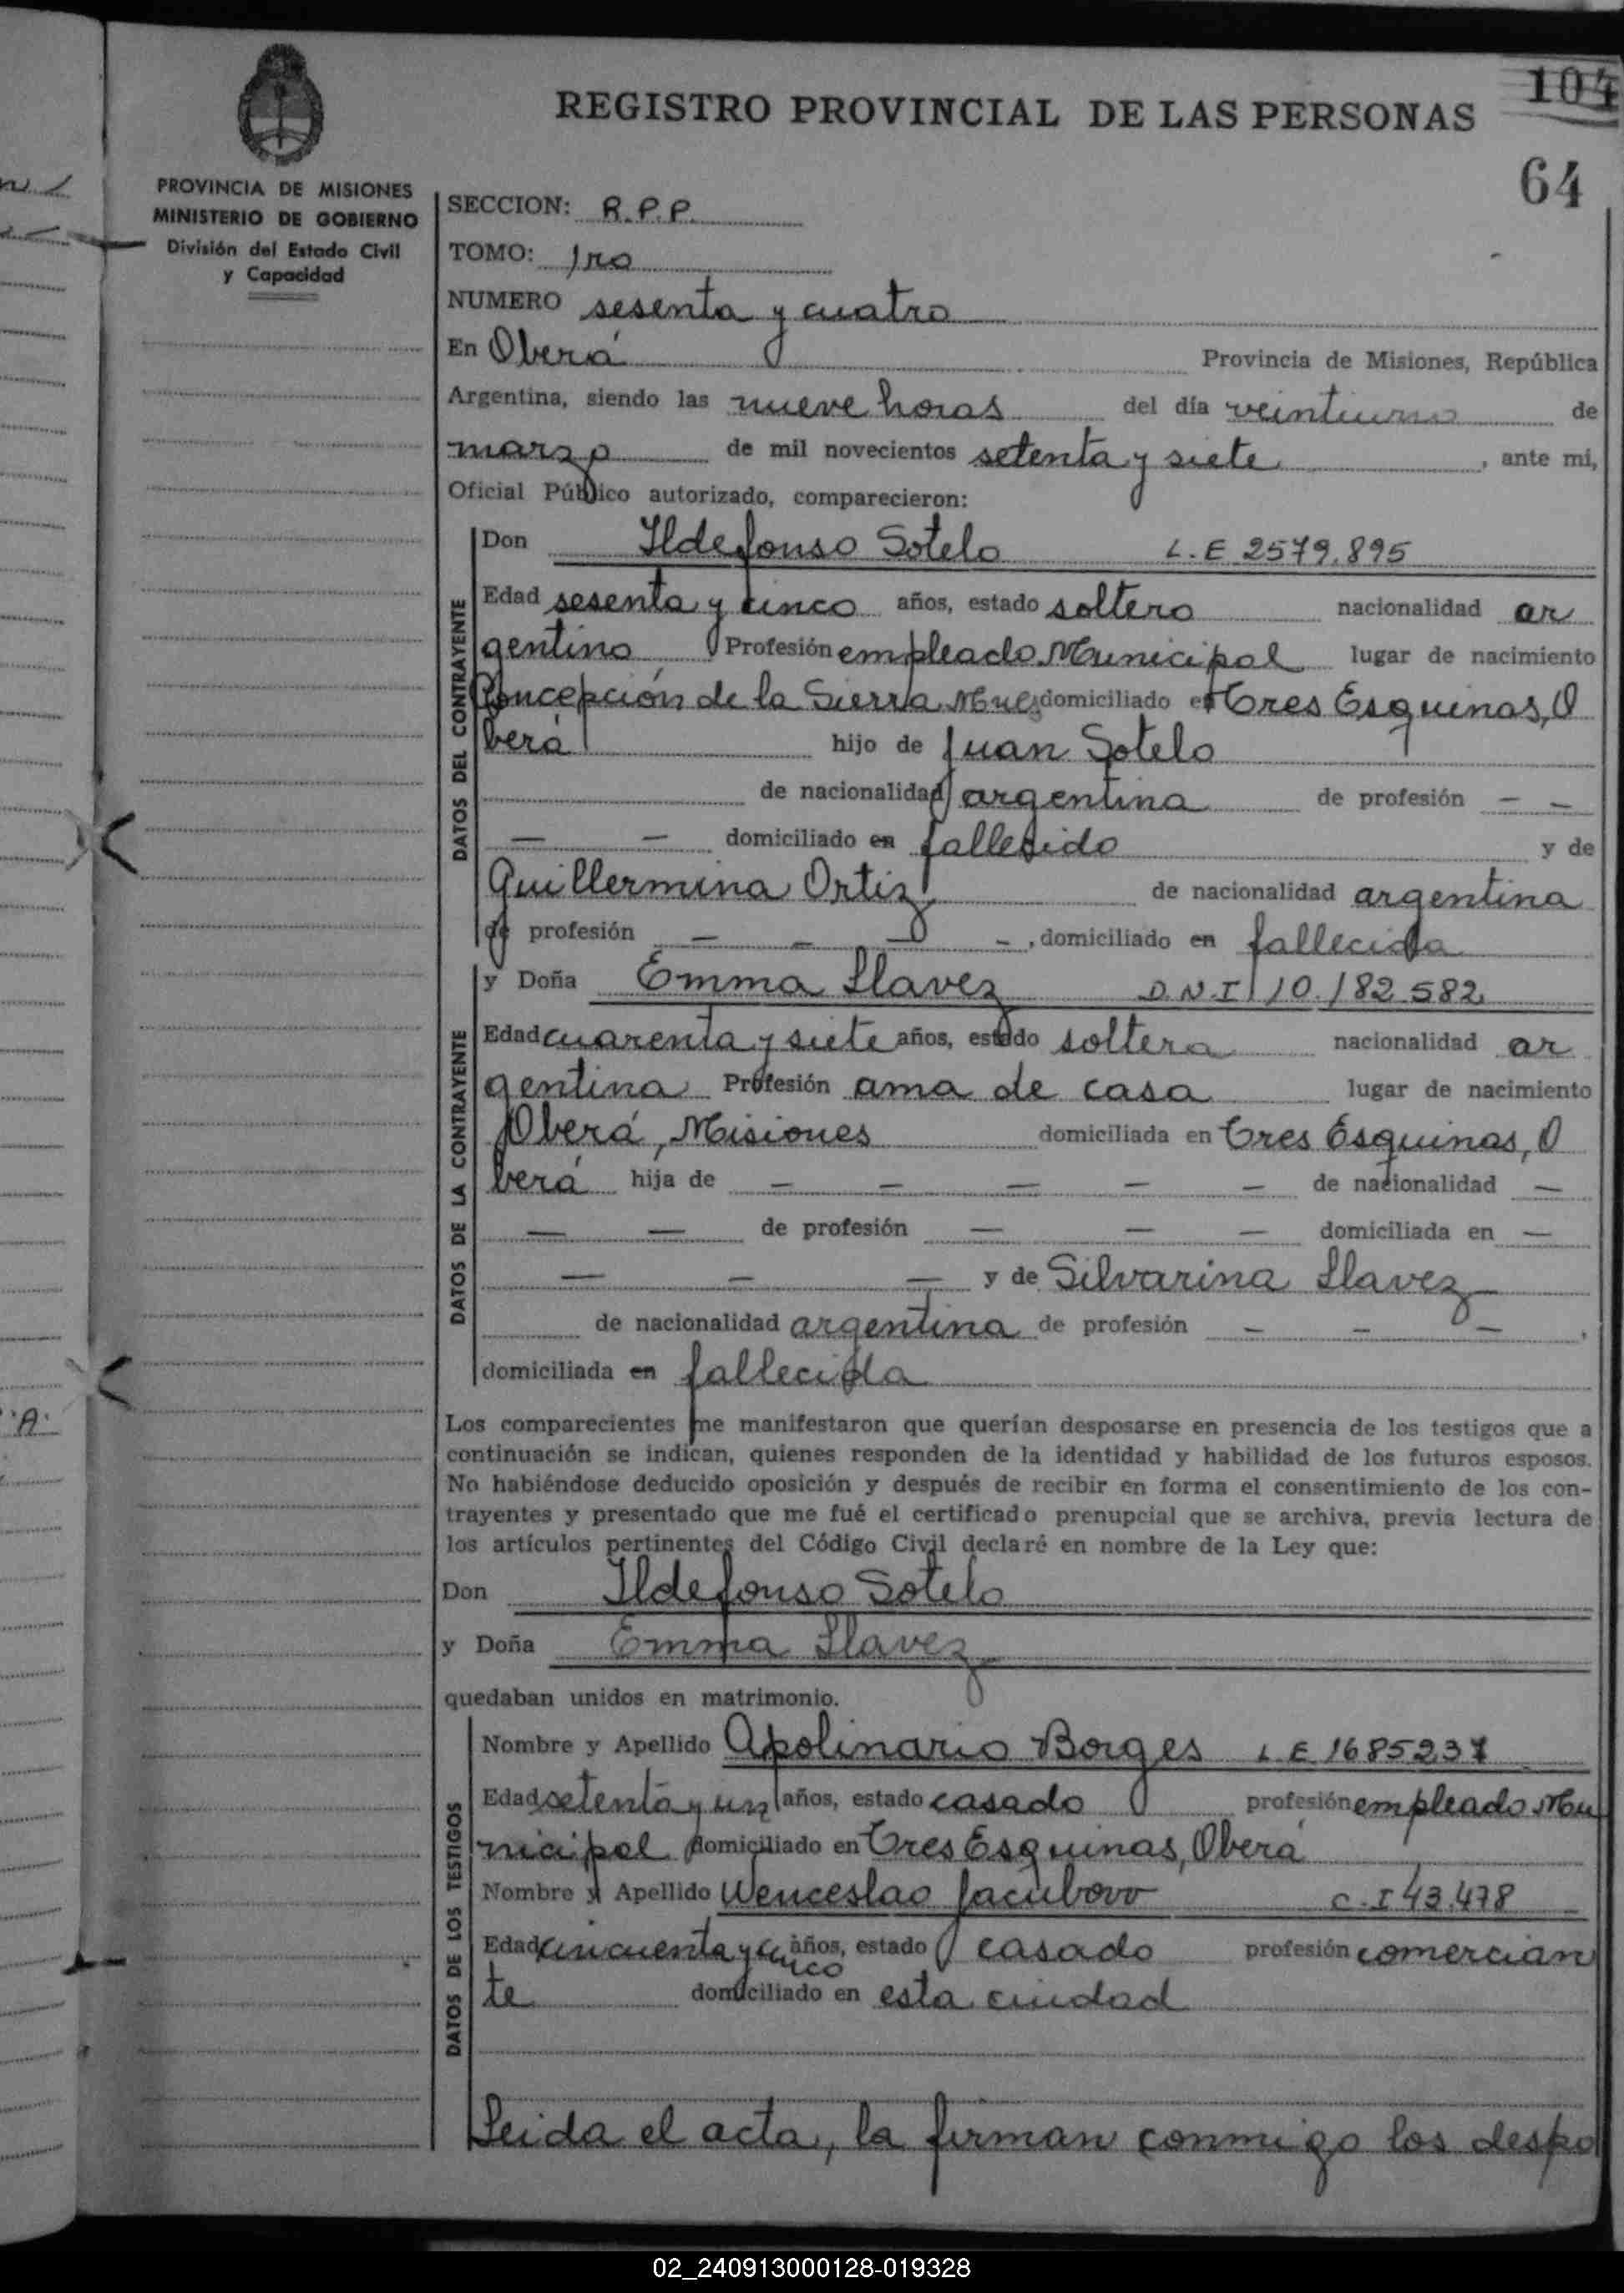 104
REGISTRO PROVINCIAL DE LAS PERSONAS
64
PROVINCIA DE MISIONES
MINISTERIO DE GOBIERNO
División del Estado Civil
y Capacidad
SECCION: R.P.P.
TOMO: 1ro
NUMERO sesenta y cuatro
En Oberá Provincia de Misiones, República
Argentina, siendo las nueve horas del día veintiuno de
marzo de mil novecientos setenta y siete, ante mi,
Oficial Público autorizado, comparecieron:
DATOS DEL CONTRAYENTE
Don Ildefonso Sotelo L.E 2579.895
Edad sesenta y cinco años, estado soltero nacionalidad ar
gentino Profesión empleado Municipal lugar de nacimiento
Concepción de la Sierra, domiciliado en Tres Esquinas, O
berá hijo de Juan Sotelo
de nacionalidad argentina de profesión — —
— — domiciliado en fallecido y de
Guillermina Ortiz de nacionalidad argentina
de profesión — — — —, domiciliado en fallecida
y Doña Emma Llavez D.N.I 10.182.582
DATOS DE LA CONTRAYENTE
Edad cuarenta y siete años, estado soltera nacionalidad ar
gentina Profesión ama de casa lugar de nacimiento
Oberá, Misiones domiciliada en Tres Esquinas, O
berá hija de — — — — — de nacionalidad —
— — de profesión — — — domiciliada en —
— — — y de Silvarina Llavez
de nacionalidad argentina de profesión — — —,
domiciliada en fallecida
Los comparecientes me manifestaron que querían desposarse en presencia de los testigos que a
continuación se indican, quienes responden de la identidad y habilidad de los futuros esposos.
No habiéndose deducido oposición y después de recibir en forma el consentimiento de los con-
trayentes y presentado que me fué el certificado prenupcial que se archiva, previa lectura de
los artículos pertinentes del Código Civil declaré en nombre de la Ley que:
Don Ildefonso Sotelo
y Doña Emma Llavez
quedaban unidos en matrimonio.
DATOS DE LOS TESTIGOS
Nombre y Apellido Apolinario Borges L.E 1685237
Edad setenta y un años, estado casado profesión empleado Mu
nicipal domiciliado en Tres Esquinas, Oberá
Nombre y Apellido Wenceslao Jacubovo C.I 43.478
Edad cincuenta y cinco años, estado casado profesión comercian
te domiciliado en esta ciudad
Leida el acta, la firman conmigo los despo
02_240913000128-019328